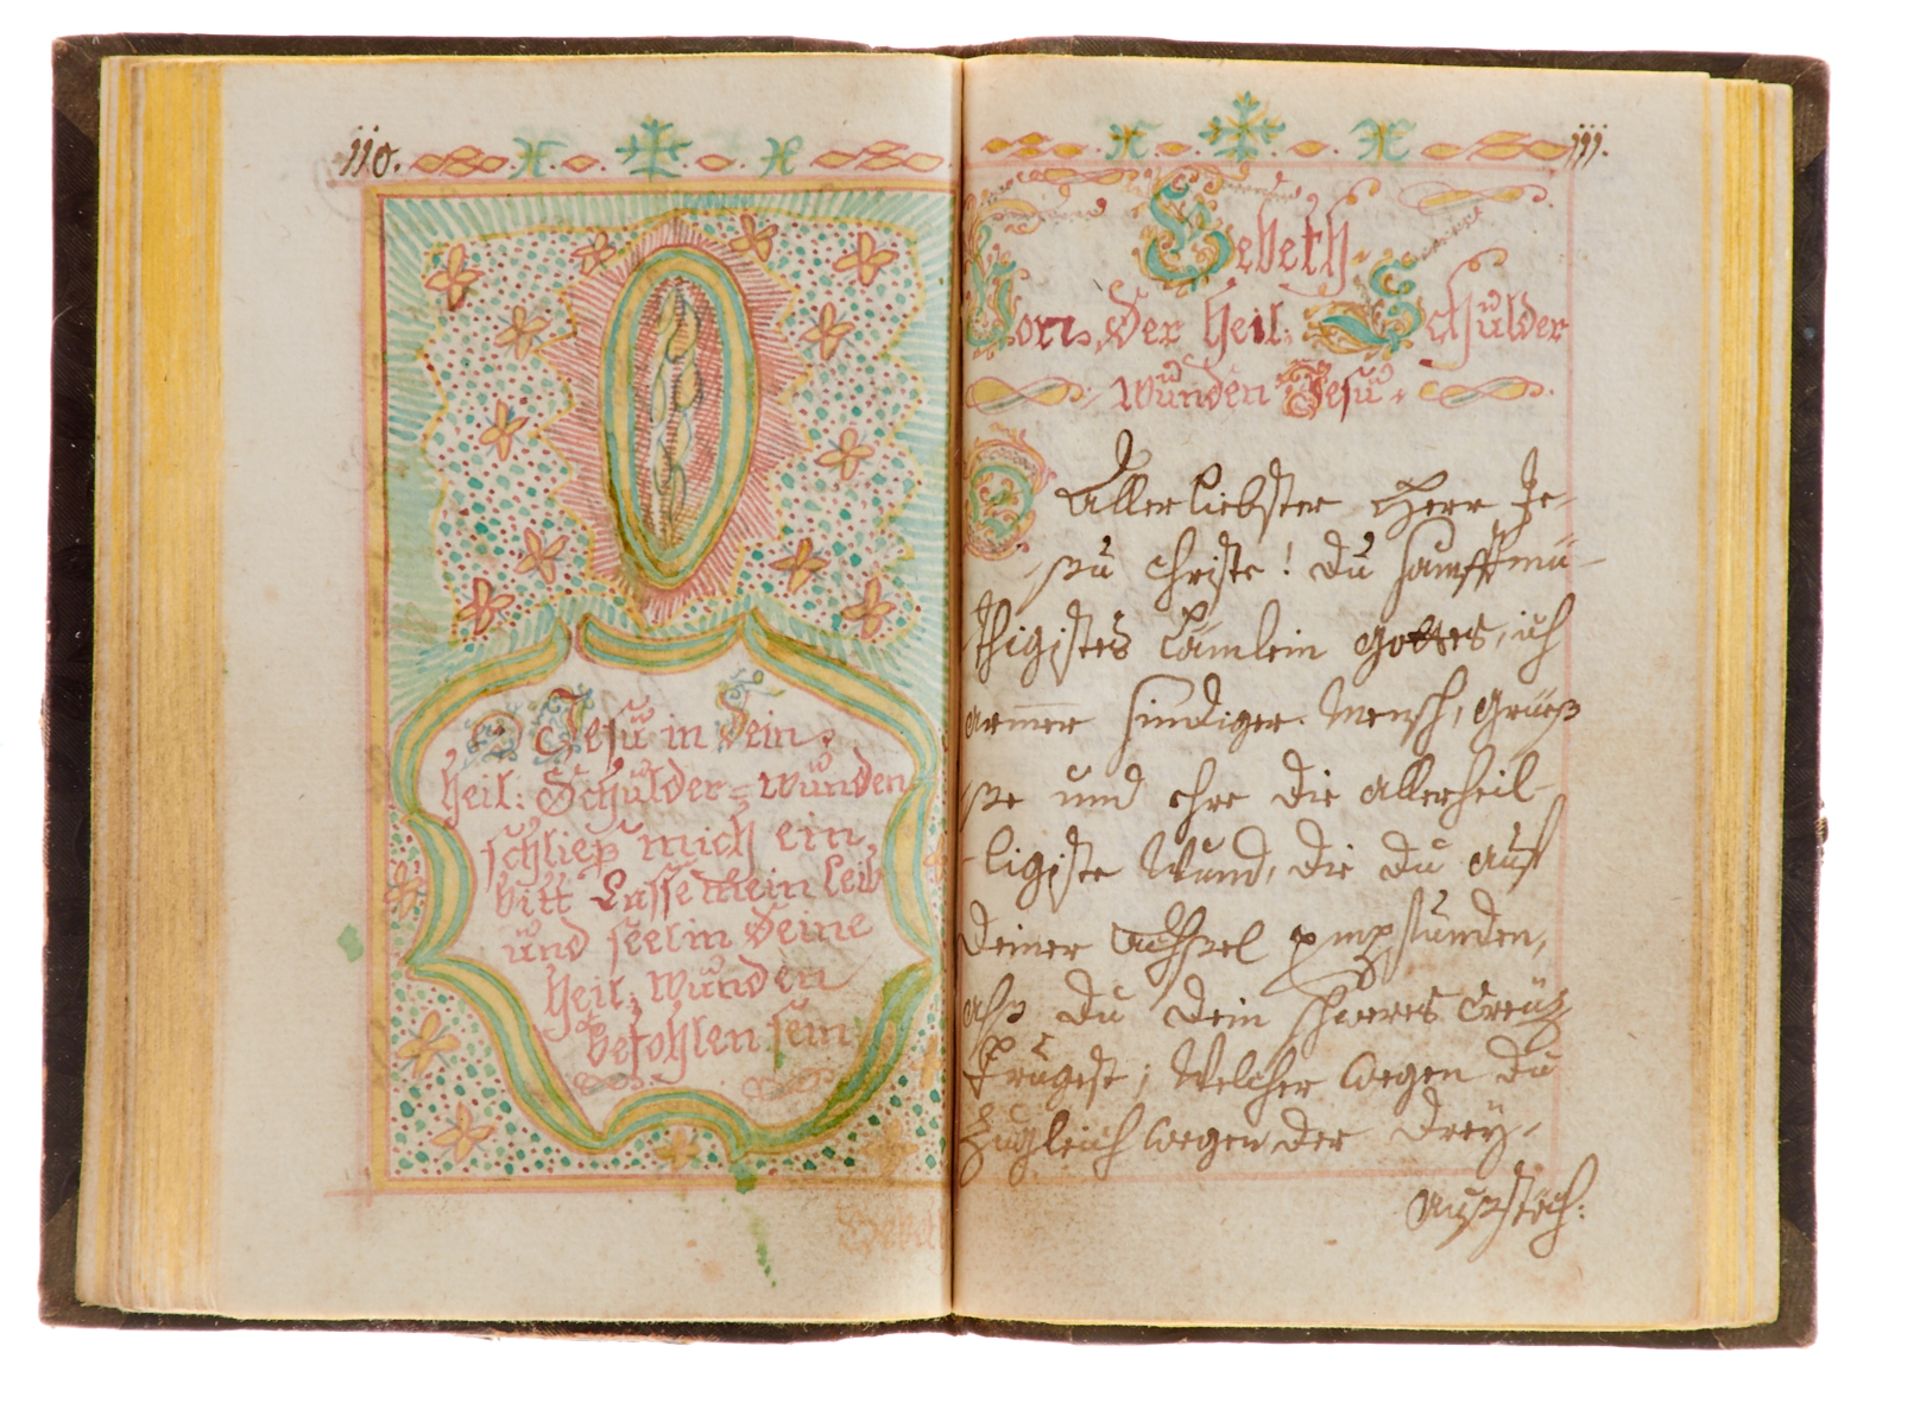 110.
O Jesu in dein
heil: Schulder=wunden
schließ mich ein,
bitt Lasse mein leib
und seel in deine
heil: wunden
befohlen sein
Gebeth
111.
Gebeth
Von der heil: Schulder
wunden Jesu
O Allerliebster Herr Je-
ßu christe! du sanfftmü-
thigistes Lämlein gottes, ich
armer sündiger Mensch, grüeß
ße und ehre die allerheil-
ligiste Wund, die du auf
deiner Achßel empfunden,
alß du dein schweres Creütz
trugest; Welcher wegen du
zugleich wegen der drey
außstöch: